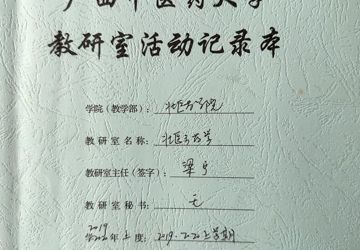 广西中医药大学
教研室活动记录本
学院（教学部）：壮医药学院
教研室名称：壮医方药学
教研室主任（签字）：梁
教研室秘书：无
2019
年 度：2019-2020上学期